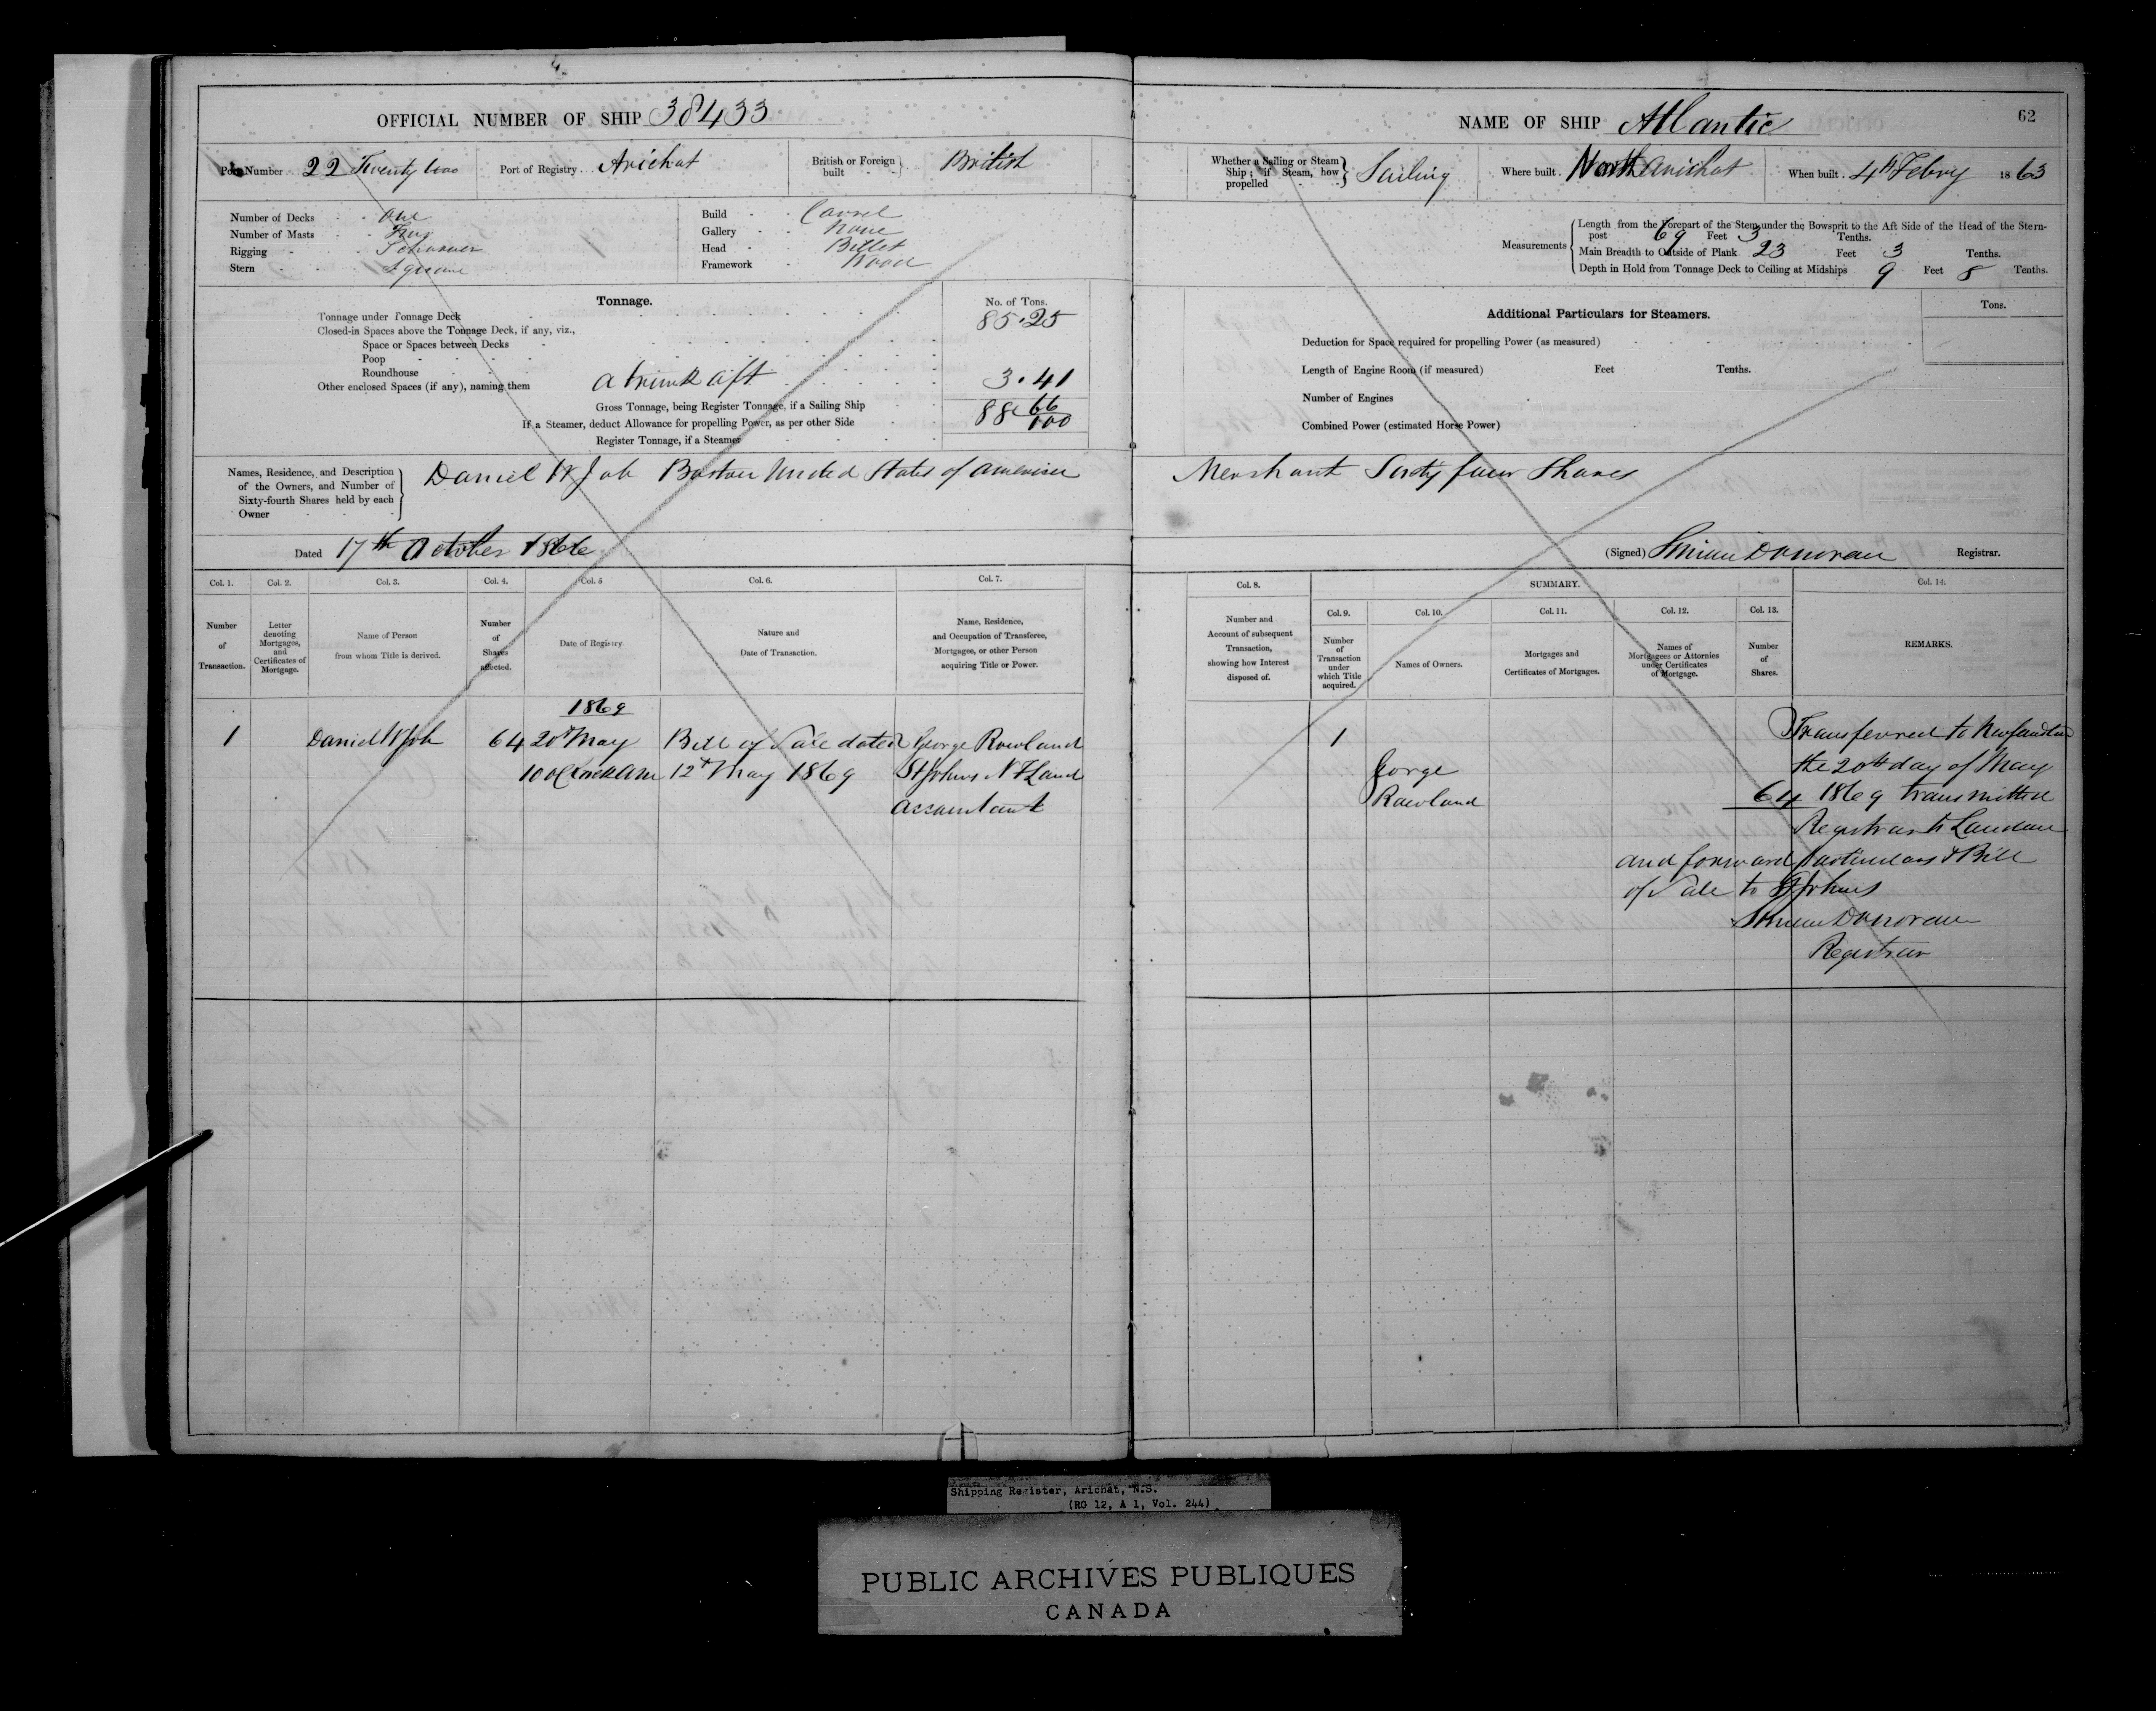 OFFICIAL NUMBER OF SHIP 38433
Port Number 22 Twenty two Port of Registry Arichat British or Foreign built British
Number of Decks One
Number of Masts Two
Rigging Schooner
Stern Square
Build Carvel
Gallery None
Head Billet
Framework Wood
Tonnage. No. of Tons.
Tonnage under Tonnage Deck 85.25
Closed-in Spaces above the Tonnage Deck, if any, viz.,
Space or Spaces between Decks
Poop
Roundhouse
Other enclosed Spaces (if any), naming them a trunk aft 3.41
Gross Tonnage, being Register Tonnage, if a Sailing Ship 88 66/100
If a Steamer, deduct Allowance for propelling Power, as per other Side
Register Tonnage, if a Steamer
Names, Residence, and Description of the Owners, and Number of Sixty-fourth Shares held by each Owner
Daniel W Job Boston United States of America
Dated 17th October 1866
Col. 1. Col. 2. Col. 3. Col. 4. Col. 5 Col. 6. Col. 7.
Number of Transaction.
Letter denoting Mortgages, and Certificates of Mortgage.
Name of Person from whom Title is derived.
Number of Shares affected.
Date of Registry.
Nature and Date of Transaction.
Name, Residence, and Occupation of Transferee, Mortgagee, or other Person acquiring Title or Power.
1869
1 Daniel W Job 64 20th May Bill of Sale dated George Rowland
10 oClock AM 12th May 1869 St Johns N F Land
Accountant
62
NAME OF SHIP Atlantic
Whether a Sailing or Steam Ship; if Steam, how propelled Sailing Where built North Arichat When built 4th Febry 1863
Measurements
Length from the Forepart of the Stem under the Bowsprit to the Aft Side of the Head of the Stern-
post 69 Feet 3 Tenths.
Main Breadth to Outside of Plank 23 Feet 3 Tenths.
Depth in Hold from Tonnage Deck to Ceiling at Midships 9 Feet 8 Tenths.
Additional Particulars for Steamers. Tons.
Deduction for Space required for propelling Power (as measured)
Length of Engine Room (if measured) Feet Tenths.
Number of Engines
Combined Power (estimated Horse Power)
Merchant Sixty four Shares
(Signed) Donovan Registrar.
Col. 8. SUMMARY. Col. 14.
Col. 9. Col. 10. Col. 11. Col. 12. Col. 13.
Number and Account of subsequent Transaction, showing how Interest disposed of.
Number of Transaction under which Title acquired.
Names of Owners.
Mortgages and Certificates of Mortgages.
Names of Mortgagees or Attornies under Certificates of Mortgage.
Number of Shares.
REMARKS.
1
George
Rowland
64
Transferred to
the 20th day of May
1869 transmitted
Registrar to London
and forward Particulars & Bill
of Sale to St Johns
Donovan
Registrar
Shipping Register, Arichat, N.S.
(RG 12, A 1, Vol. 244)
PUBLIC ARCHIVES PUBLIQUES
CANADA